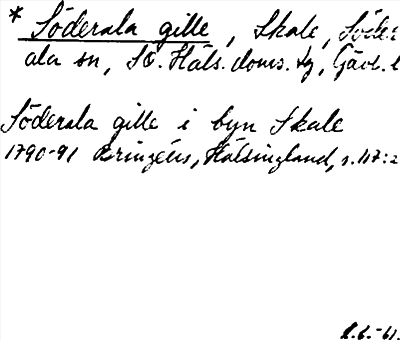 * Söderala gille, Skale, Söder
ala sn, Sö. Häls. doms. sg, Gävl. l
Söderala gille i byn Skale
1790-91 Bringéus, Hälsingland, s. 117:2
2.6.-61.